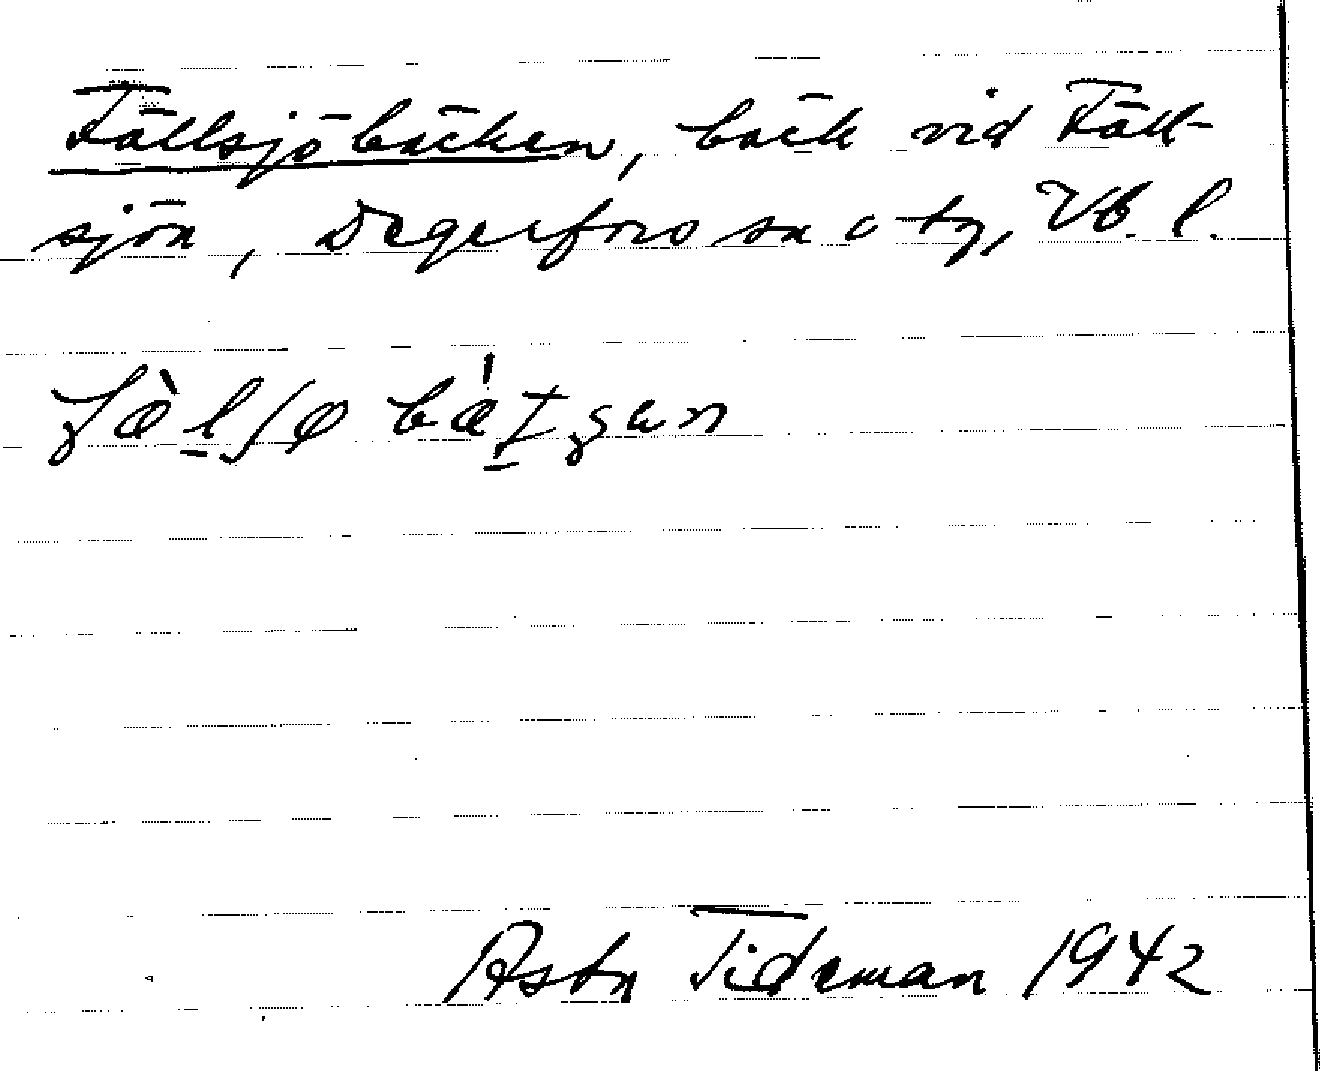 Fällsjöbäcken, bäck vid Fäll-
sjön, Degerfors sn o tg, Vb. l.
Astr Tideman 1942